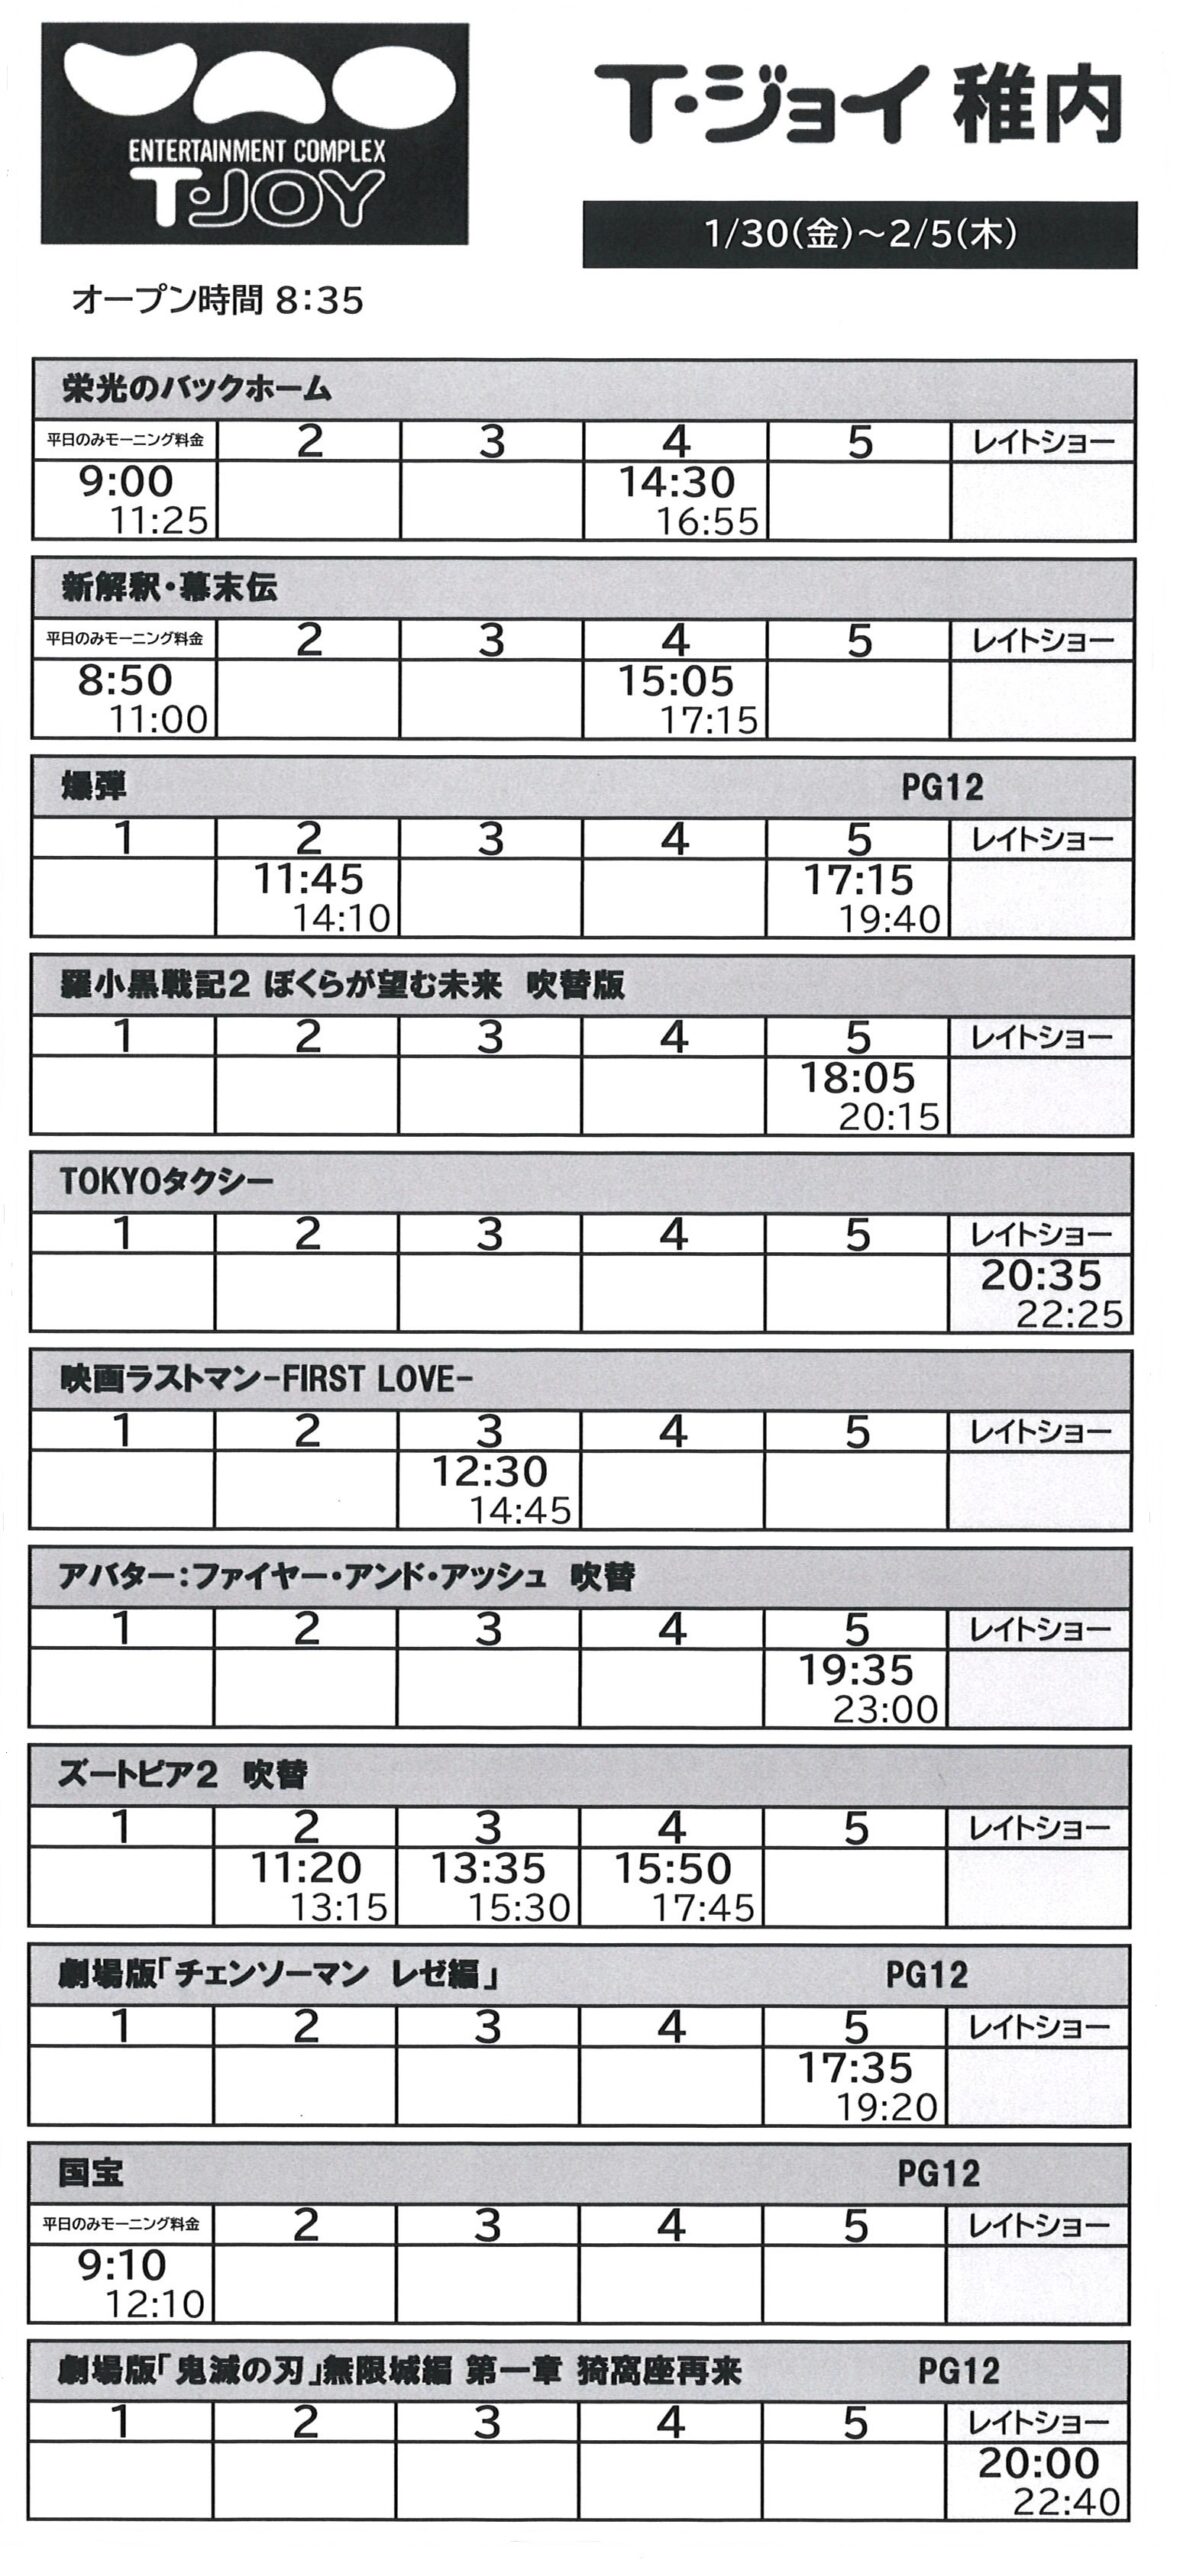 ENTERTAINMENT COMPLEX
T・JOY
T・ジョイ 稚内
1/30(金)～2/5(木)
オープン時間 8:35
栄光のバックホーム
平日のみモーニング料金 2 3 4 5 レイトショー
9:00 14:30
11:25 16:55
新解釈・幕末伝
平日のみモーニング料金 2 3 4 5 レイトショー
8:50 15:05
11:00 17:15
爆弾 PG12
1 2 3 4 5 レイトショー
11:45 17:15
14:10 19:40
羅小黒戦記2 ぼくらが望む未来 吹替版
1 2 3 4 5 レイトショー
18:05
20:15
TOKYOタクシー
1 2 3 4 5 レイトショー
20:35
22:25
映画ラストマン-FIRST LOVE-
1 2 3 4 5 レイトショー
12:30
14:45
アバター:ファイヤー・アンド・アッシュ 吹替
1 2 3 4 5 レイトショー
19:35
23:00
ズートピア2 吹替
1 2 3 4 5 レイトショー
11:20 13:35 15:50
13:15 15:30 17:45
劇場版「チェンソーマン レゼ編」 PG12
1 2 3 4 5 レイトショー
17:35
19:20
国宝 PG12
平日のみモーニング料金 2 3 4 5 レイトショー
9:10
12:10
劇場版「鬼滅の刃」無限城編 第一章 猗窩座再来 PG12
1 2 3 4 5 レイトショー
20:00
22:40